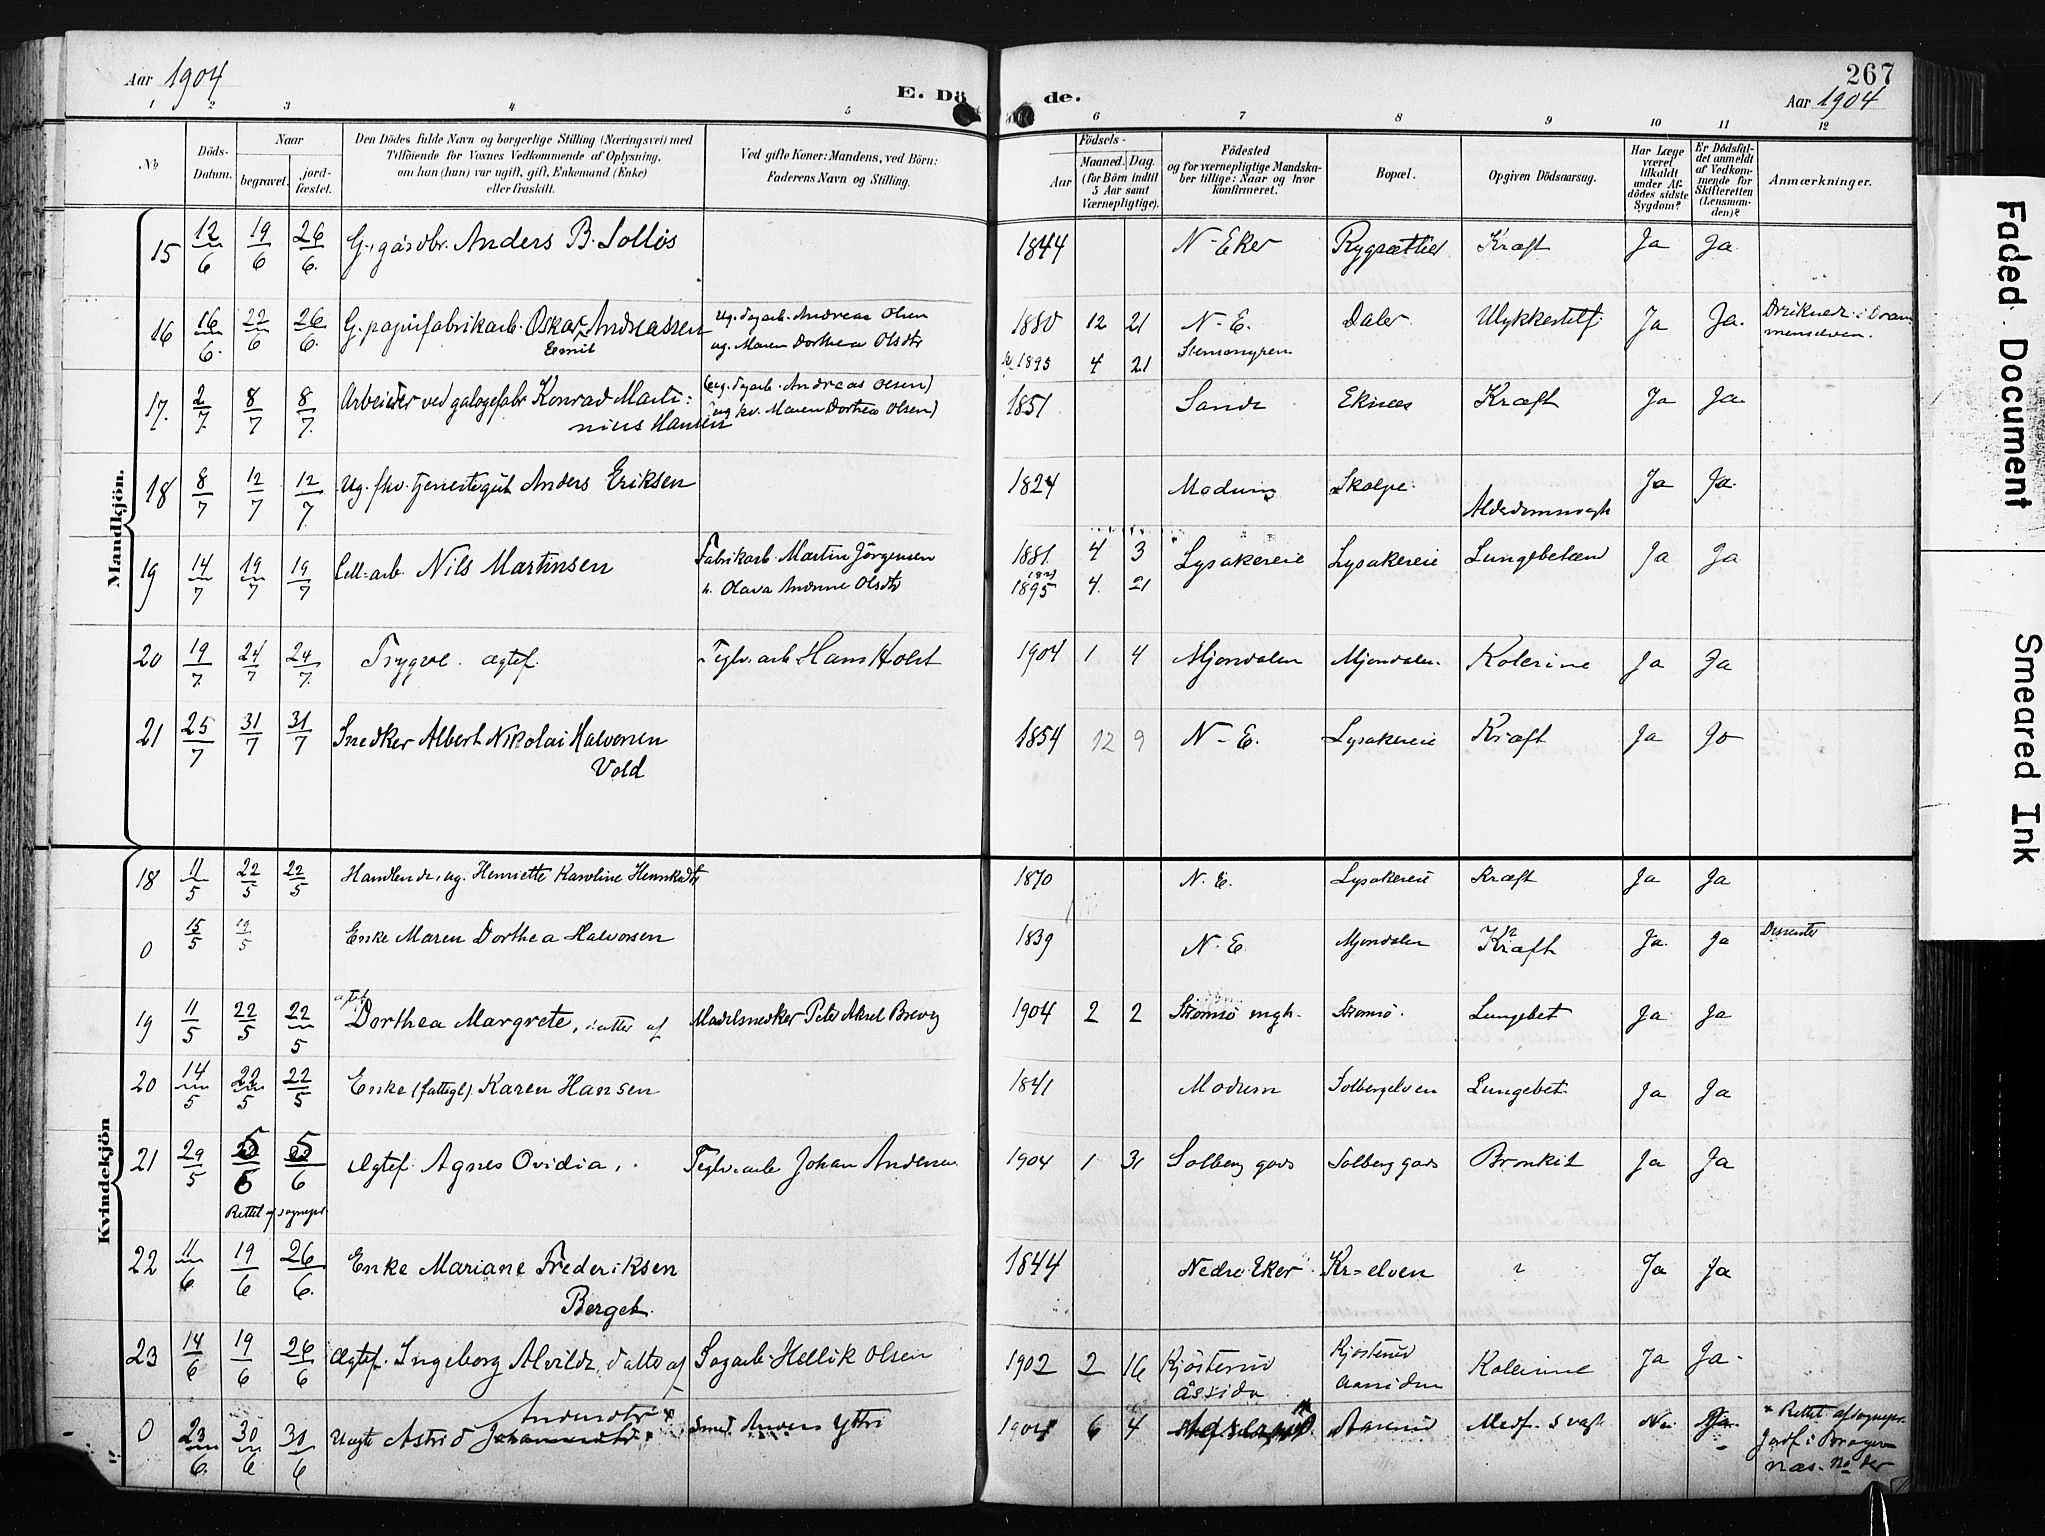 Aar 1904
E. Dö
de.
267
Aar 1904
1 2 3 4 5 6 7 8 9 10 11 12
No
Döds-
Datum.
Naar
begravet.
jord-
fæstet.
Den Dödes fulde Navn og borgerlige Stilling (Næringsvei) med
Tilföiende for Voxnes Vedkommende af Oplysning,
om han (hun) var ugift, gift, Enkemand (Enke)
eller fraskilt.
Ved gifte Koner: Mandens, ved Börn:
Faderens Navn og Stilling.
Födsels-
Aar
Maaned.
Dag.
(for Börn indtil
5 Aar samt
Værnepligtige).
Födested
og for værnepligtige Mandska-
ber tillige: Naar og hvor
konfirmeret.
Bopæl.
Opgiven Dödsaarsag.
Har Læge
været
tilkaldt
under Af-
dödes sidste
Sygdom?
Er Dödsfal-
det anmeldt
af Vedkom-
mende for
Skifteretten
(Lensman-
den)?
Anmærkninger.
Mandkjön.
15 12/6 19/6 26/6 G. gårdbr. Anders B. Solløs 1844 N-Eker Kræft Ja Ja
16 16/6 22/6 26/6 G. papirfabrikarb. Oskar Andreassen ug. dagarb. Andreas Olsen 1880 12 21 N-E. Daler Ulykkestilf. Ja Ja. Druknede i Dram-
Emil ug. Maren Dorthea Olsdtr 1895 4 21 menselven.
17. 2/7 8/7 8/7 Arbeider ved galogefabr. Konrad Marti- (ug. dagarb. Andreas Olsen) 1851 Sande Eknes Kræft Ja Ja.
nius Hansen (ug kv. Maren Dorthea Olsen)
18 8/7 12/7 12/7 Ug. fhv. tjenestegut Anders Eriksen 1824 Modum Alderdomssvagh Ja Ja.
19 14/7 19/7 19/7 Cell-arb. Nils Martinsen Fabrikarb. Martin Jörgensen 1881 4 3 Lysakereie Lysakereie Lungebetæn Ja Ja
h. Olava Andrine Olsdtr 1895 4. 21
20 19/7 24/7 24/7 Trygve. ægtef. Teglv.arb. Hans Holst 1904 1 4 Mjondalen Mjondalen. Kolerine Ja Ja
21 25/7 31/7 31/7 Snedker Albert Nikolai Halvorsen 1854 12 9 N-E. Lysakereie Kræft Ja Ja
Vold
Kvindekjön
18 11/5 22/5 22/5 Handlende, ug. Henriette Karoline Henriksdtr 1870 N.E. Lysakereie Kræft Ja Ja
0 15/5 19/5 Enke Maren Dorthea Halvorsen 1839 N.E. Mjondalen Kræft Ja. Ja Dissenter
19 11/5 22/5 22/5 ægtef. Dorthea Margrete, datter af Modelsnedker Peter Aksel Brevig 1904 2 2 Strømsø mgh. Strømsø. Lungebet Ja Ja
20 14/5 22/5 22/5 Enke (fattigl). Karen Hansen 1841 Modum Solbergelven Lungebet. Ja Ja
21 29/5 5/6 5/6 Ægtef. Agnes Ovidia, Teglv.arb. Johan Andersen 1904 1 31 Solberg gods Solberg gods Bronkit Ja Ja
Rettet af sognepr
22 11/6 19/6 26/6 Enke Mariane Frederiksen 1844 Nedre Eker Kr-elven ? Ja Ja
Berget.
23 14/6 19/6 26/6 Ægtef. Ingeborg Alvilde, datter af Sagarb. Hellik Olsen 1902 2 16 Kjösterud Kjösterud Kolerine Ja Ja.
Åssida Aasiden
0 23/6 30/6 30/6 Ungte Astrid Andersdtr * Smed Anders Ytter 1904 6 4 Aaserud Medf. svagh Nei Ja. * Rettet af sognepr.
Jordf. i Brager-
næs. No der
Faded Document
Smeared Ink